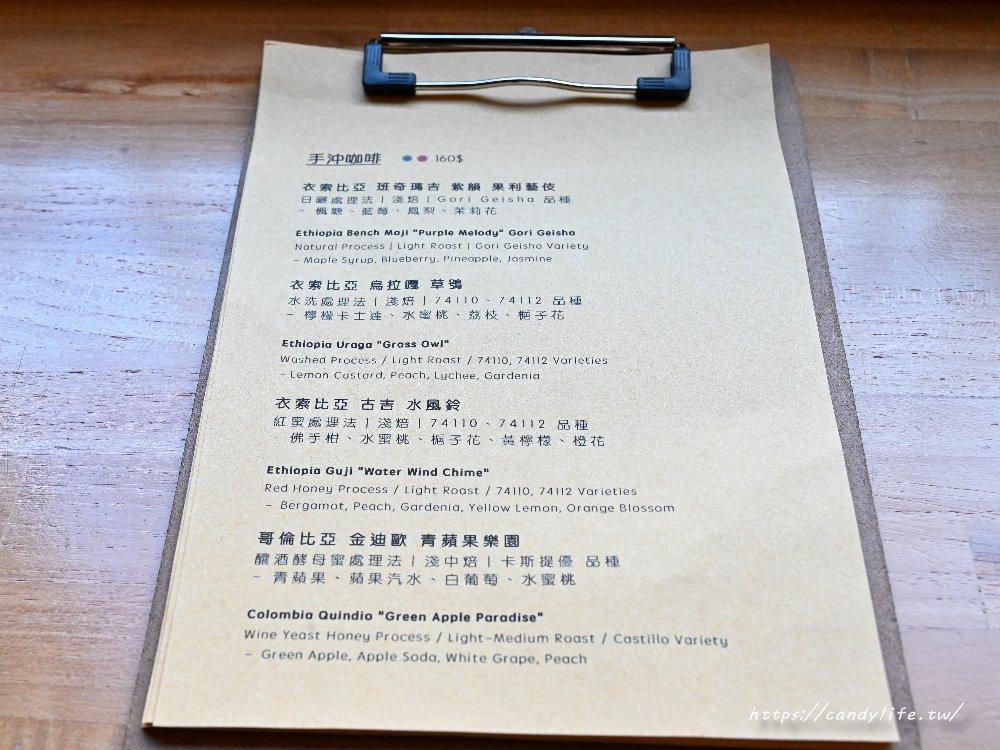 手沖咖啡 160$
衣索比亞 班奇瑪吉 紫韻 果利藝伎
日曬處理法 | 淺焙 | Gori Geisha 品種
- 楓糖、藍莓、鳳梨、茉莉花
Ethiopia Bench Maji "Purple Melody" Gori Geisha
Natural Process | Light Roast | Gori Geisha Variety
- Maple Syrup, Blueberry, Pineapple, Jasmine
衣索比亞 烏拉嘎 草鴞
水洗處理法 | 淺焙 | 74110、74112 品種
- 檸檬卡士達、水蜜桃、荔枝、梔子花
Ethiopia Uraga "Grass Owl"
Washed Process / Light Roast / 74110, 74112 Varieties
- Lemon Custard, Peach, Lychee, Gardenia
衣索比亞 古吉 水風鈴
紅蜜處理法 | 淺焙 | 74110、74112 品種
- 佛手柑、水蜜桃、梔子花、黃檸檬、橙花
Ethiopia Guji "Water Wind Chime"
Red Honey Process / Light Roast / 74110, 74112 Varieties
- Bergamot, Peach, Gardenia, Yellow Lemon, Orange Blossom
哥倫比亞 金迪歐 青蘋果樂園
釀酒酵母蜜處理法 | 淺中焙 | 卡斯提優 品種
- 青蘋果、蘋果汽水、白葡萄、水蜜桃
Colombia Quindio "Green Apple Paradise"
Wine Yeast Honey Process / Light-Medium Roast / Castillo Variety
- Green Apple, Apple Soda, White Grape, Peach
https://candylife.tw/